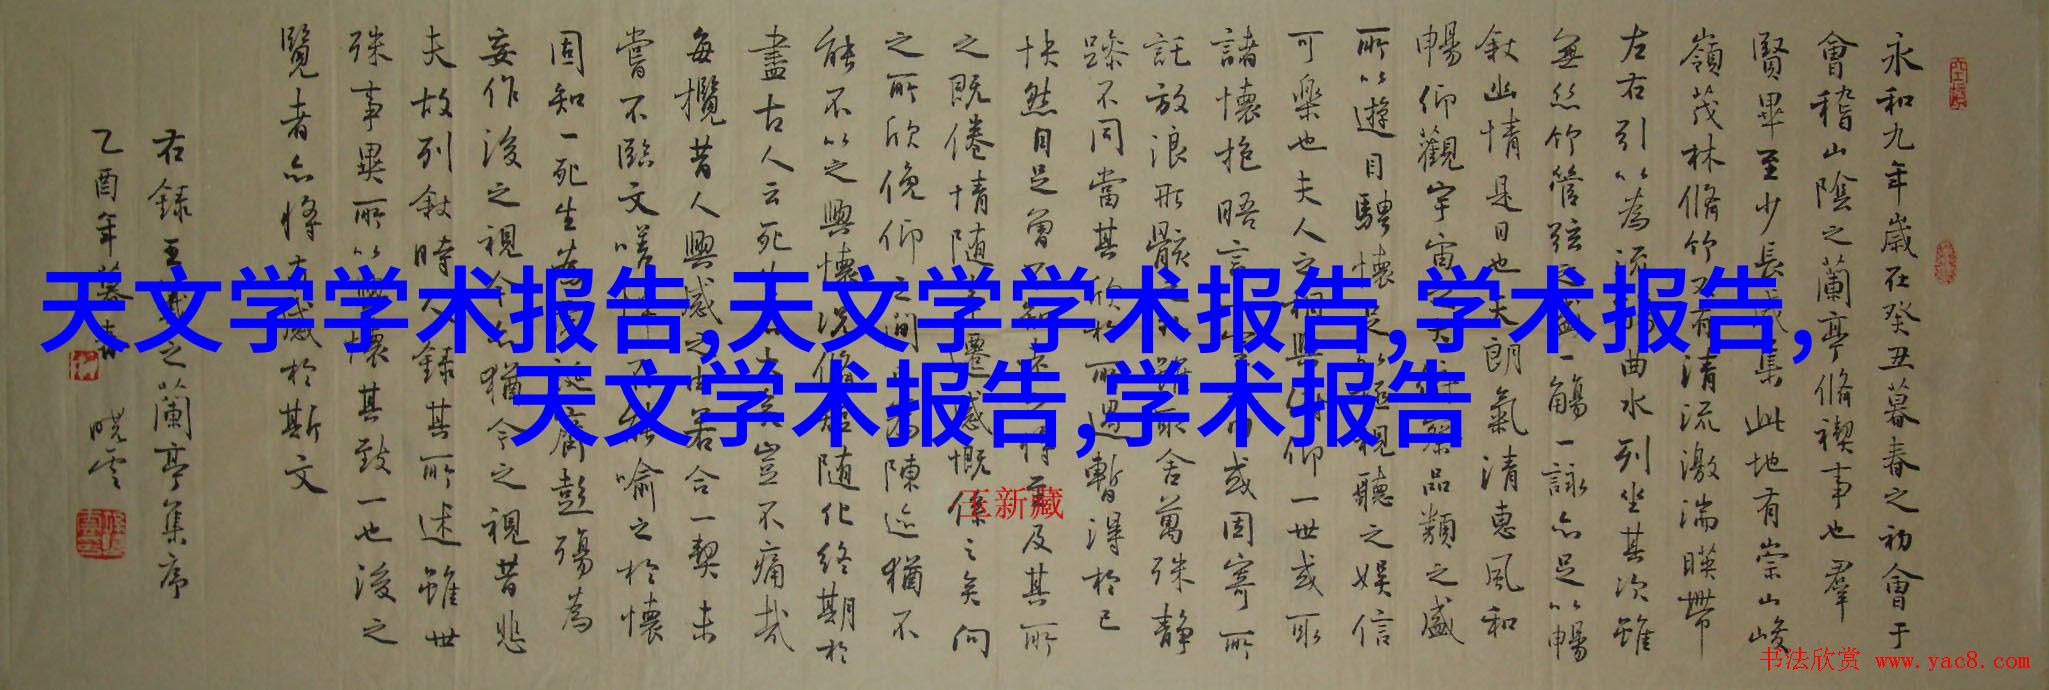 天文学学术报告,天文学学术报告,学术报告,
天文学术报告,学术报告
永和九年歲在癸丑暮春之初會于
會稽山陰之蘭亭脩禊事也羣
賢畢至少長咸集此地有崇山峻
嶺茂林脩竹又有清流激湍暎帶
左右引以為流觴曲水列坐其次雖
無絲竹管弦之盛一觴一詠亦足以暢
敘幽情是日也天朗氣清惠風和
暢仰觀宇宙之大俯察品類之盛
所以遊目騁懷足以極視聽之娛信
可樂也夫人之相與俯仰一世或取
諸懷抱晤言一室之內或因寄所
託放浪形骸之外雖取舍萬殊靜
躁不同當其欣於所遇暫得於己
快然自足曾不知老之將至及其所
之既倦情隨事遷感慨係之矣向
之所欣俛仰之間以為陳迹猶不
能不以之興懷況脩短隨化終期於
盡古人云死生亦大矣豈不痛哉
每攬昔人興感之由若合一契未
嘗不臨文嗟悼不能喻之於懷
固知一死生為虛誕齊彭殤為
妄作後之視今亦猶今之視昔悲
夫故列敘時人錄其所述雖世
殊事異所以興懷其致一也後之
覽者亦將有感於斯文
右錄王羲之蘭亭集序
乙酉年暮春 曉雲
王新藏
书法欣赏 www.yac8.com